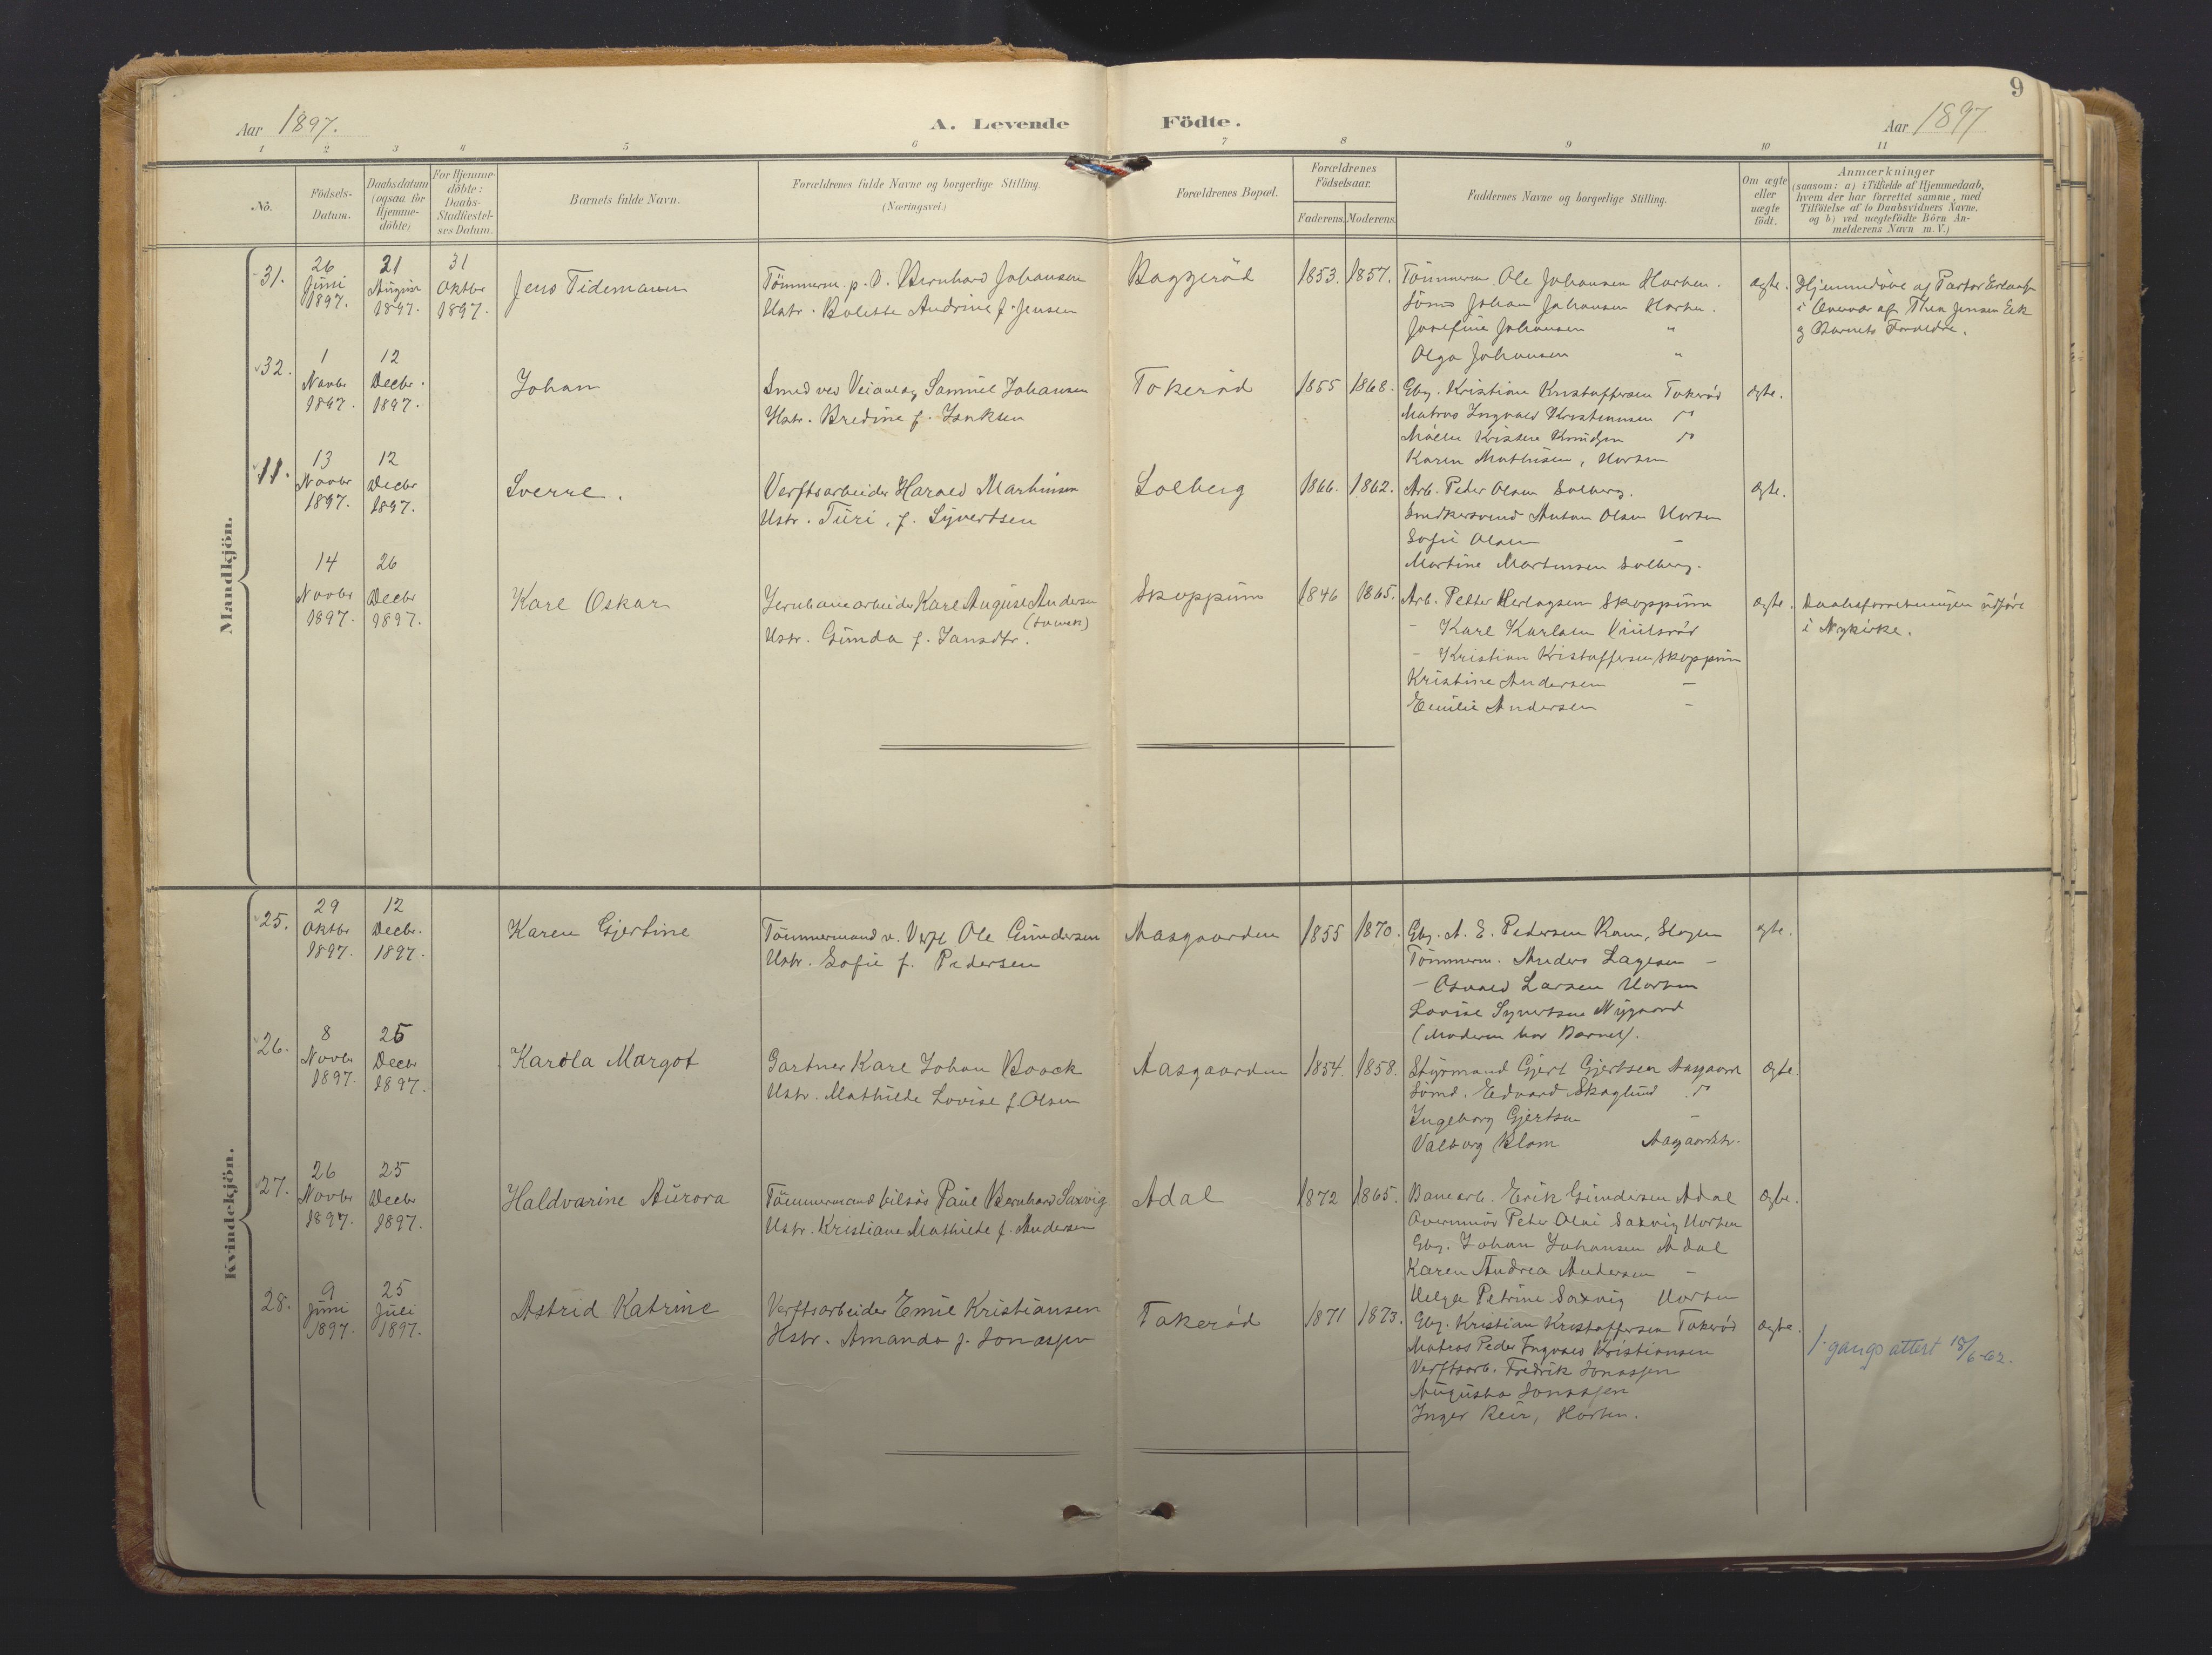 9
Aar 1897.
A. Levende Födte.
Aar 1897
1 2 3 4 5 6 7 8 9 10 11
No.
Födsels-
Datum.
Daabsdatum
(ogsaa for
Hjemme-
döbte)
For Hjemme-
döbte:
Daabs-
Stadfæstel-
ses Datum.
Barnets fulde Navn.
Forældrenes fulde Navne og borgerlige Stilling.
(Næringsvei.)
Forældrenes Bopæl.
Forældrenes
Födselsaar.
Faderens. Moderens.
Faddernes Navne og borgerlige Stilling.
Om ægte
eller
uægte
födt.
Anmærkninger
(saasom: a) i Tilfælde af Hjemmedaab,
hvem der har forrettet samme, med
Tilföielse af to Daabsvidners Navne,
og b) ved uægtefödte Börn An-
melderens Navn m. V.)
Mandkjön.
31.
26
Juni
1897.
21
August
1897.
31
Oktbr
1897.
Jens Tidemann
Tömmerm. p. V. Bernhard Johansen
Hstr. Bolette Andrine f. Jensen
Baggeröd
1853. 1857.
Tömmerm. Ole Johansen Horten.
Sömd Johan Johansen Horten.
Josefine Johansen "
Olga Johansen "
ægte.
Hjemmedöbt af Pastor
i Overvær af Thea Jensen Eik
og Barnets Forældre.
32.
1
Novbr
1897.
12
Decbr.
1897.
Johan
Smed ved Veianlæg Samuel Johansen
Hstr. Bredine f. Isaksen
Tokeröd
1855 1868.
Gbr. Kristian Kristoffersen Tokeröd
Matros Ingvald Kristiansen "
Kristine Knudsen "
Karen Mathisen, Horten
ægte.
11.
13
Novbr
1897.
12
Decbr
1897.
Sverre.
Verftsarbeider Harald Martinsen
Hstr. Turi, f. Syvertsen
Solberg
1866. 1862.
Arb. Peder Olsen Solberg.
Snedkersvend Anton Olsen Horten
Sofie Olsen -
Martine Martinsen Solberg.
ægte.
14
Novbr
1897.
26
Decbr
1897.
Karl Oskar
Jernbanearbeider Karl August Andersen
(svensk)
Hstr. Gunda f. Jansdtr.
Skoppum
1846 1865.
Arb. Petter Herlagsen Skoppum
- Karl Karlsen
- Kristian Kristoffersen Skoppum
Kristine Andersen -
Emilie Andersen -
ægte.
Daabsforretningen udfört
i Nykirke.
Kvindekjön.
25.
29
Oktbr
1897.
12
Decbr.
1897.
Karen Gjertine
Tömmermand v. Verft Ole Gundersen
Hstr. Sofie f. Pedersen
Aasgaarden
1855 1870.
Gbr. A. E. Pedersen Ram, Slagen
Tömmerm. Anders Lagesen -
- Osvald Larsen Horten
Lovise Syvertsen Nygaard
(Moderen bar Barnet).
ægte.
26.
8
Novbr
1897.
25
Decbr
1897.
Karola Margot
Gartner Karl Johan Boock
Hstr. Mathilde Lovise f. Olsen
Aasgaarden
1854. 1858.
Styrmand Gjert Gjertsen Aasgaard
Sömd. Edvard Skaglund "
Ingeborg Gjertsen -
Valborg Blom Aasgaardstr.
ægte.
27.
26
Novbr
1897.
25
Decbr
1897.
Haldvarine Aurora
Tömmermand tilsös Paul Bernhard Saxvig
Hstr. Kristiane Mathilde f. Andersen
Adal
1872 1865.
Banearb. Erik Gundersen Adal
Peter Olai Saxvig Horten
Gbr. Johan Johansen Adal
Karen Andrea Andersen -
Helga Petrine Saxvig Horten
ægte.
28.
9
Juni
1897.
25
Juli
1897.
Astrid Katrine
Verftsarbeider Emil Kristiansen
Hstr. Amanda f. Jonassen
Tokeröd
1871 1873.
Gbr. Kristian Kristoffersen Tokeröd
Matros Peder Ingvald Kristiansen
Verftsarb. Fredrik Jonassen
Augusta Jonassen
Inger Reir, Horten.
ægte.
1. gangs attest 18/6-62.